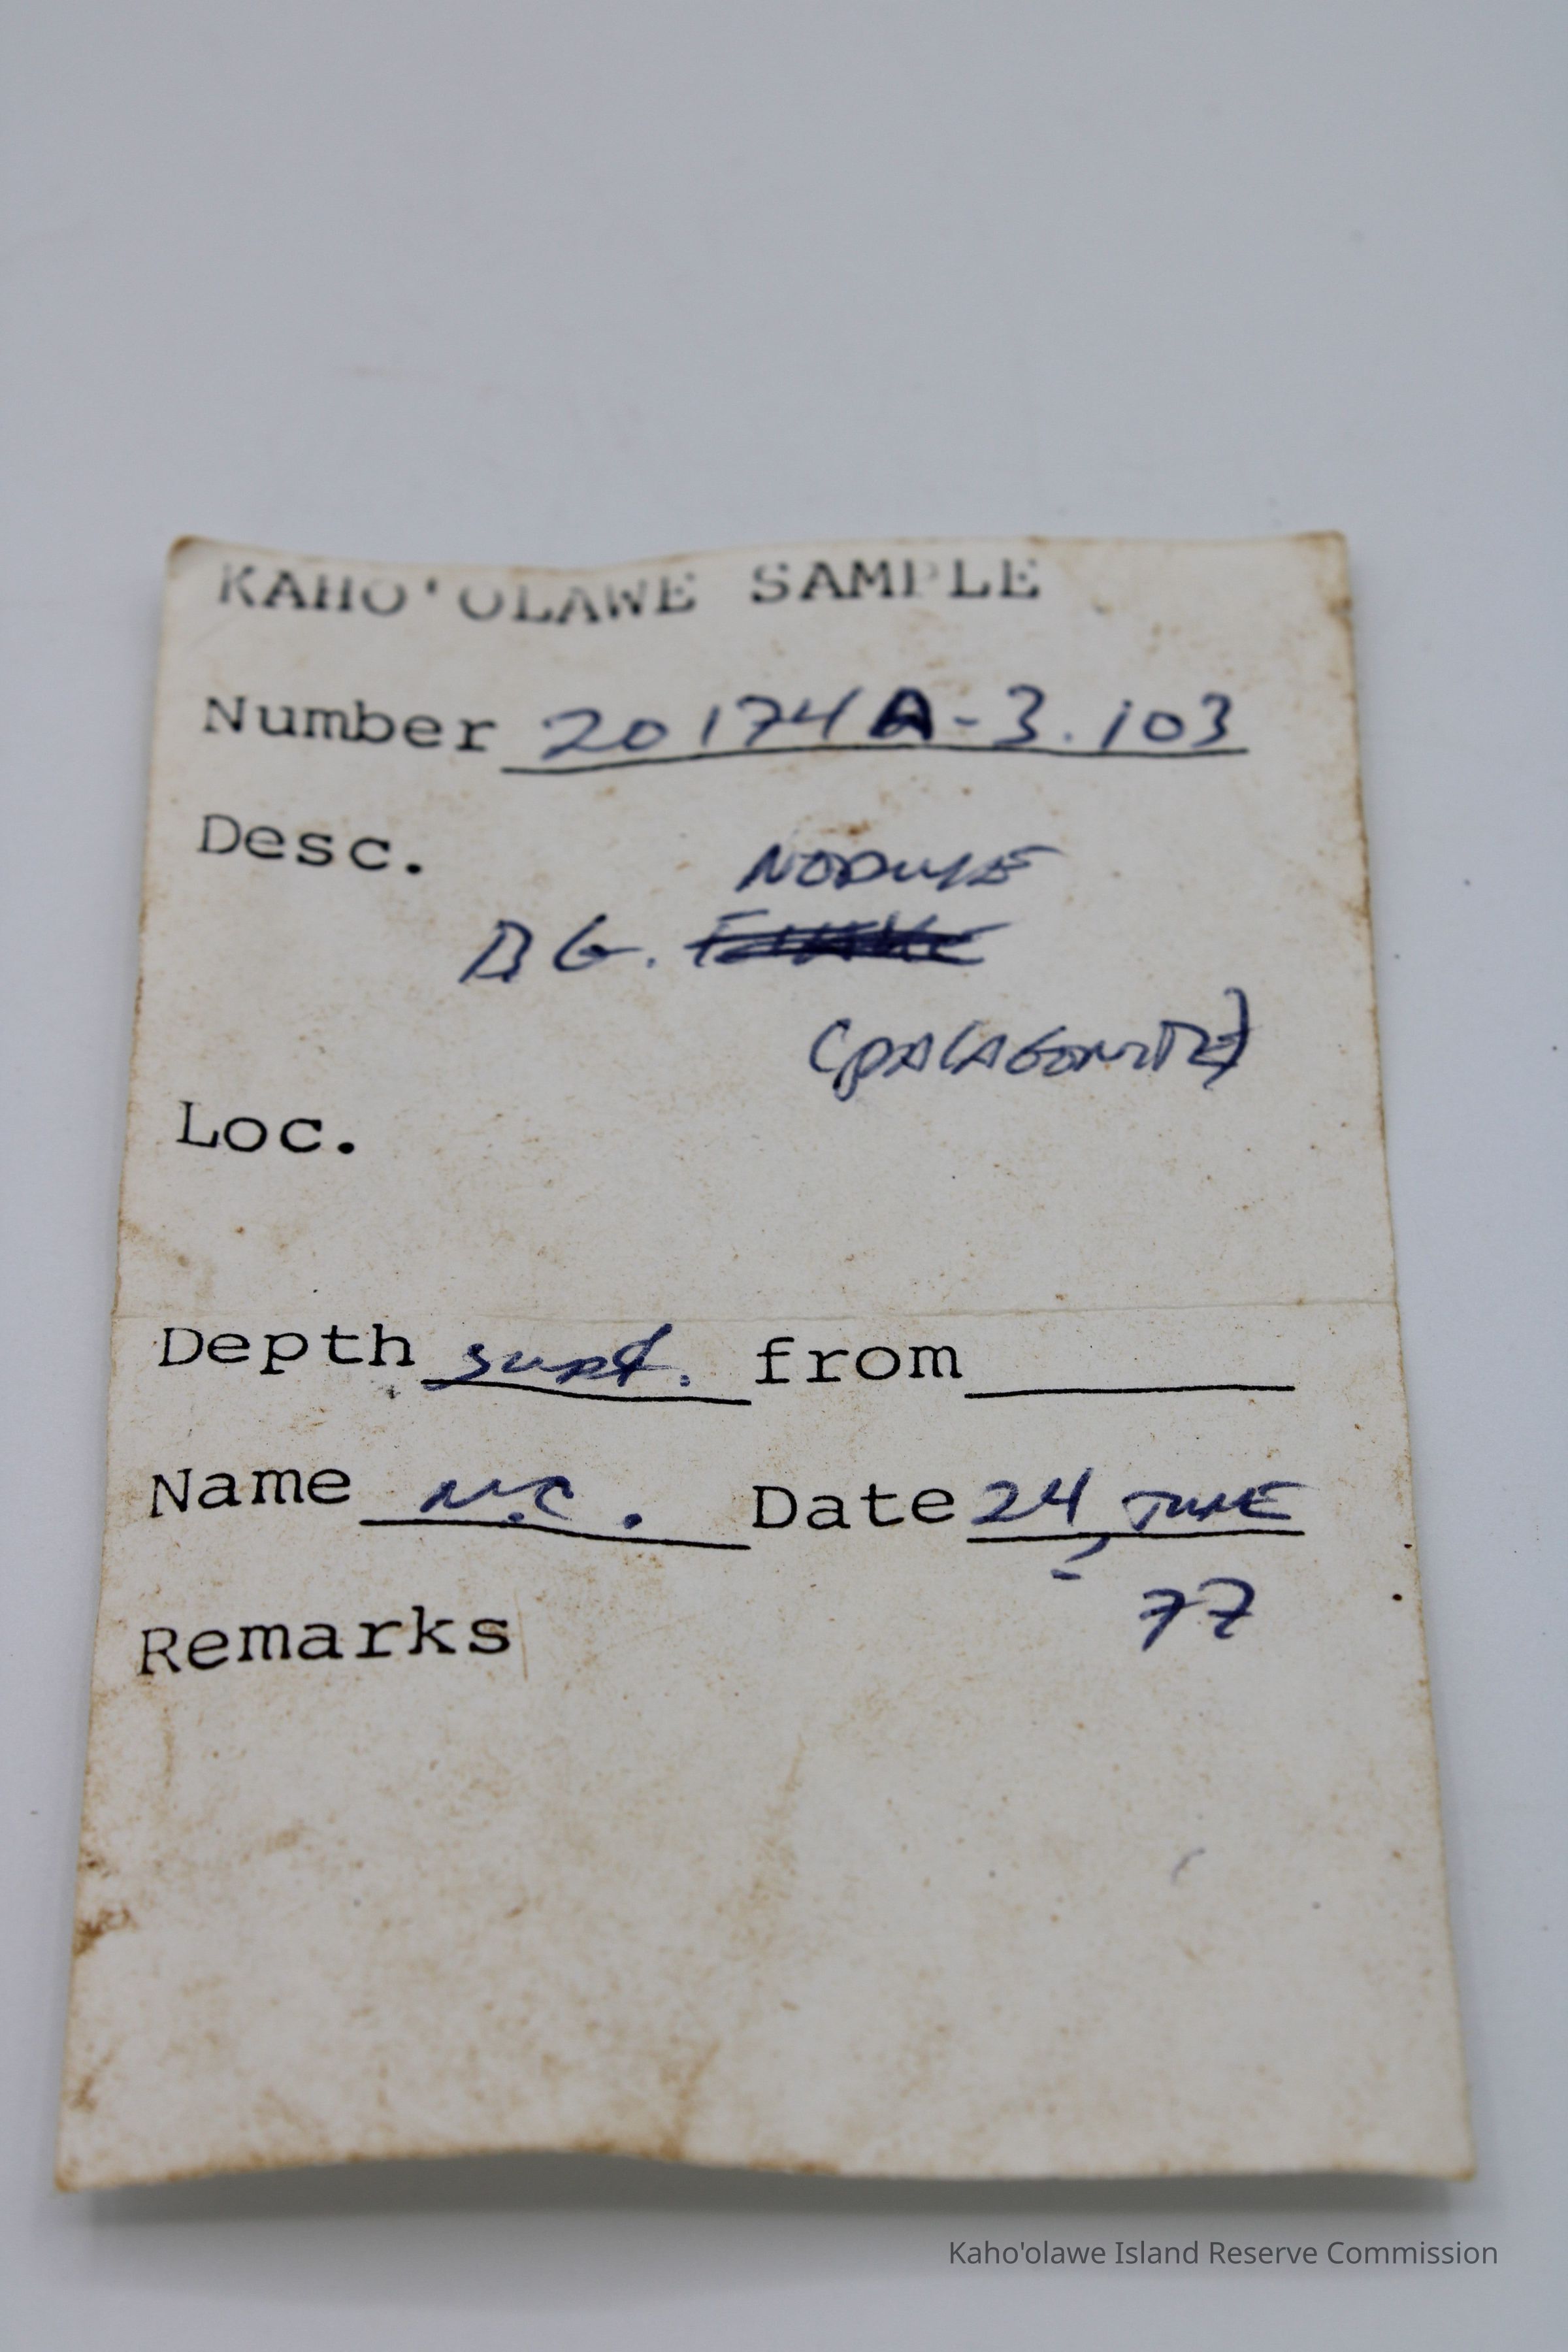 KAHO'OLAWE SAMPLE
Number 20174A-3.103
Desc.
NODULE
B G.
(PALAGONITE)
Loc.
Depth surf. from
Name N.C. Date 24 JUNE
77
Remarks
Kaho'olawe Island Reserve Commission